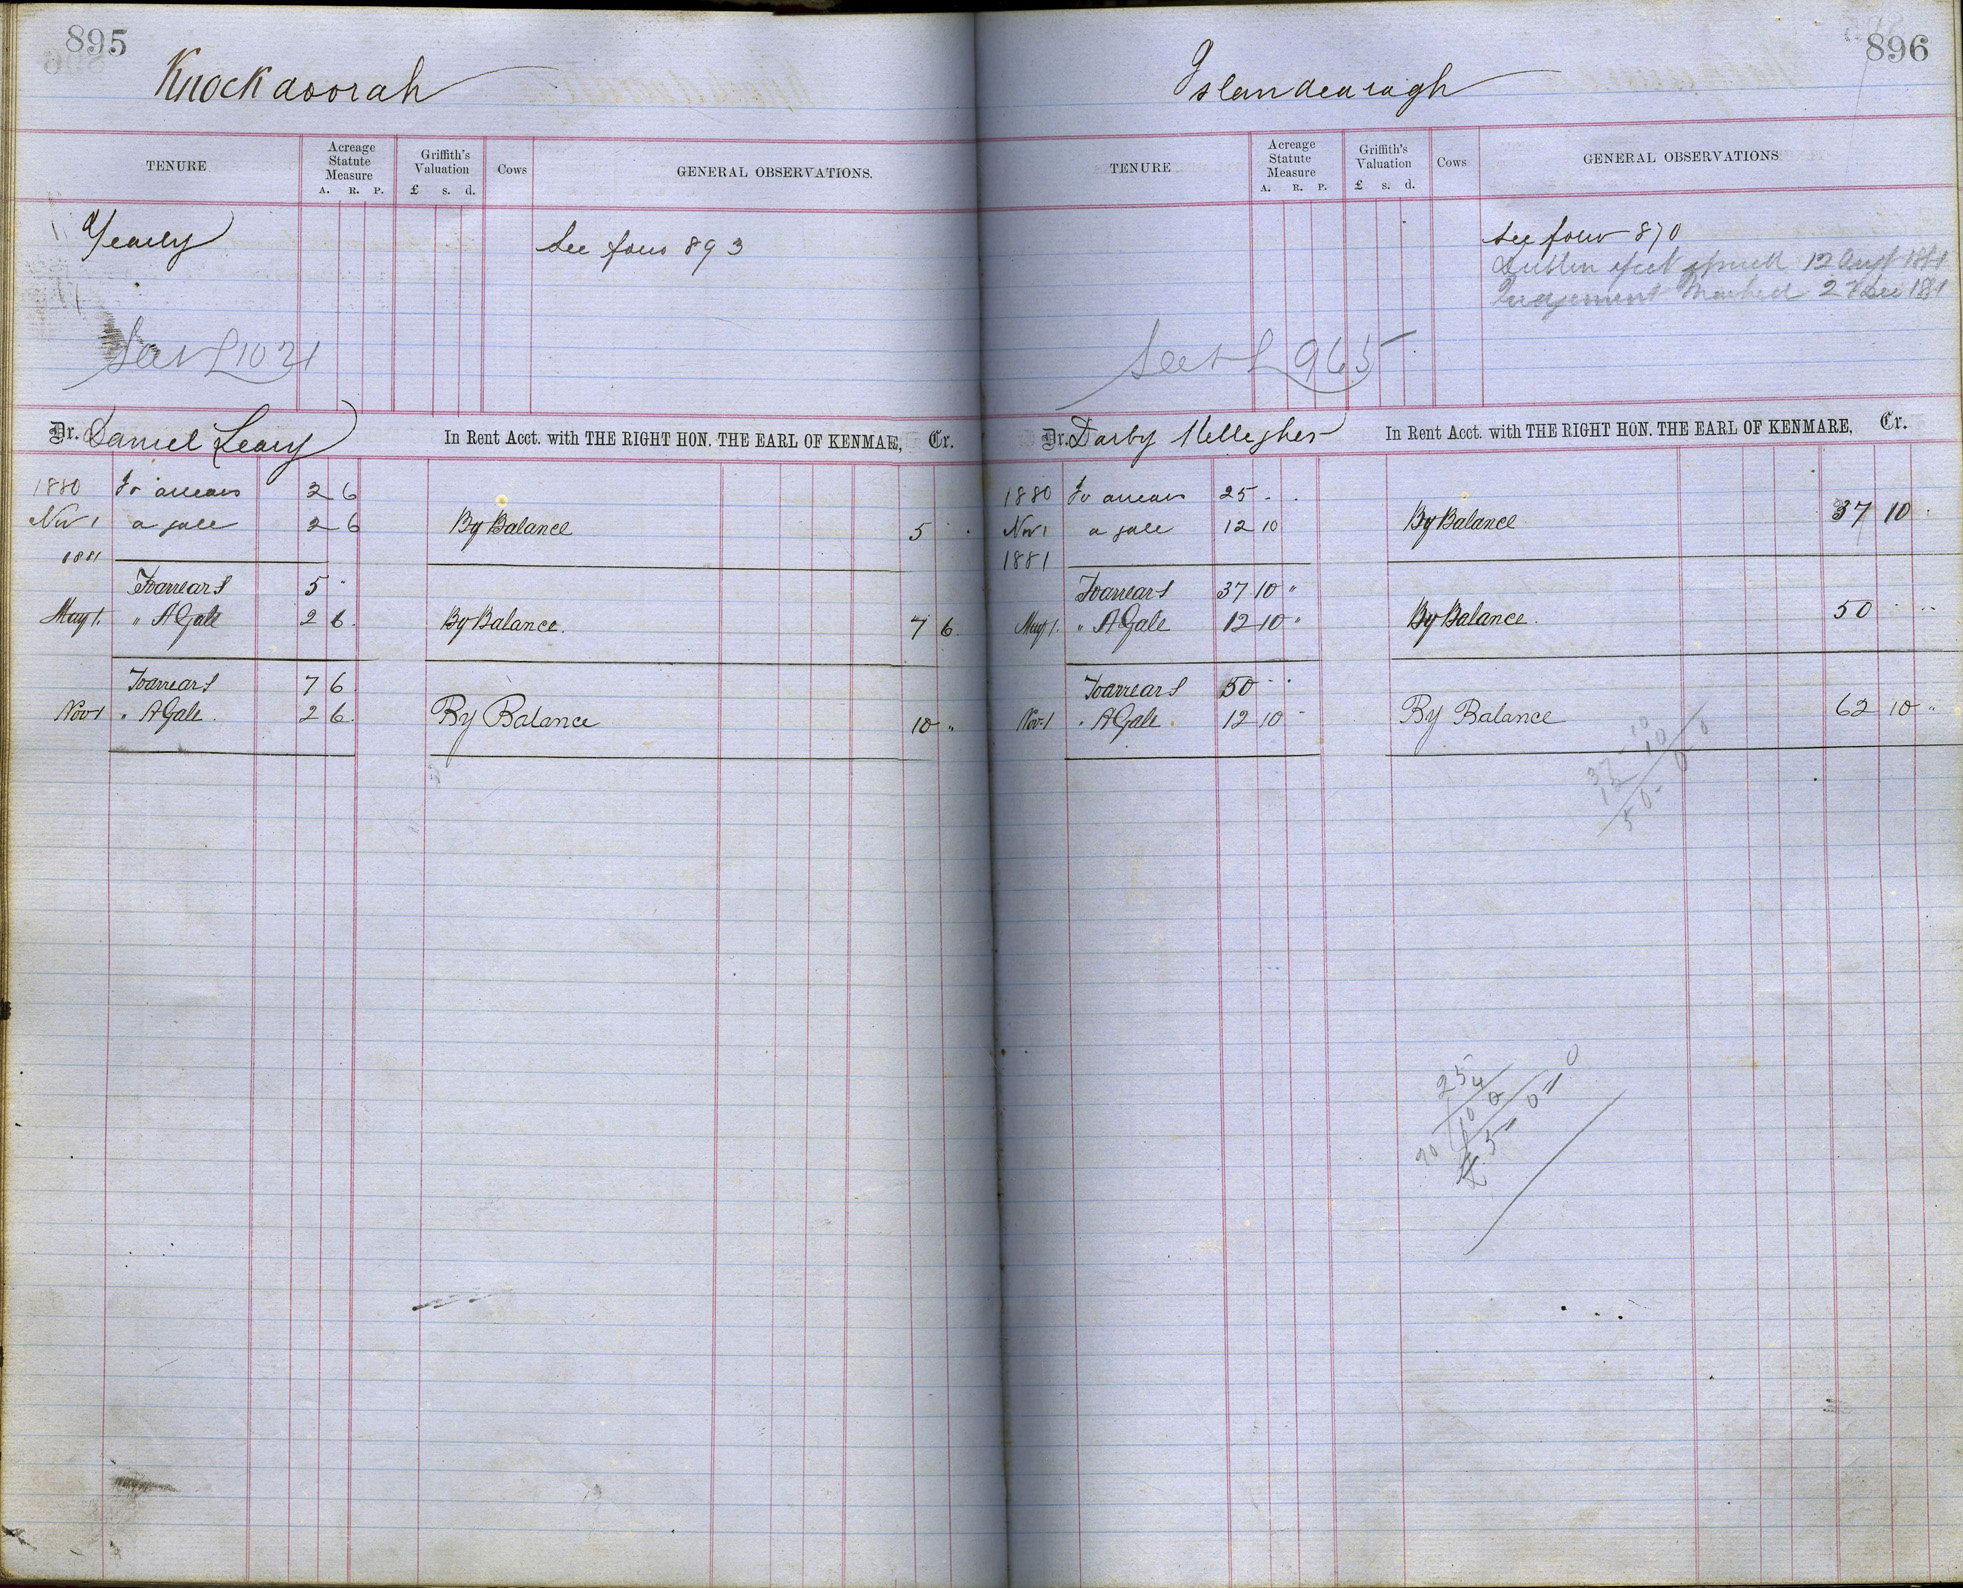 895
Knockdoorah
TENURE
Acreage Statute Measure
A. R. P.
Griffith's Valuation
£ s. d.
Cows
GENERAL OBSERVATIONS.
Yearly
See folio 893
1031
Dr. Daniel Leary In Rent Acct. with THE RIGHT HON. THE EARL OF KENMARE, Cr.
1880 To arrears 2 6
Nov 1 a gale 2 6 By Balance 5
1881
To arrears 5 "
May 1. " A Gale 2 6 By Balance. 7 6
To arrears 7 6
Nov 1 " A Gale. 2 6 By Balance 10 "
896
Islandearagh
TENURE
Acreage Statute Measure
A. R. P.
Griffith's Valuation
£ s. d.
Cows
GENERAL OBSERVATIONS
See folio 870
Dublin 12 Augt 1881
Judgement Marked 2 Dec 1881
965
Dr. Darby Kelleher In Rent Acct. with THE RIGHT HON. THE EARL OF KENMARE, Cr.
1880 To arrears 25 - .
Nov 1 a gale 12 10 By Balance 37 10
1881
To arrears 37 10 "
May 1. " A Gale 12 10 " By Balance. 50
To arrears 50
Nov. 1 " A Gale 12 10 By Balance 62 10 "
37 10
12 10 0
50 0 0